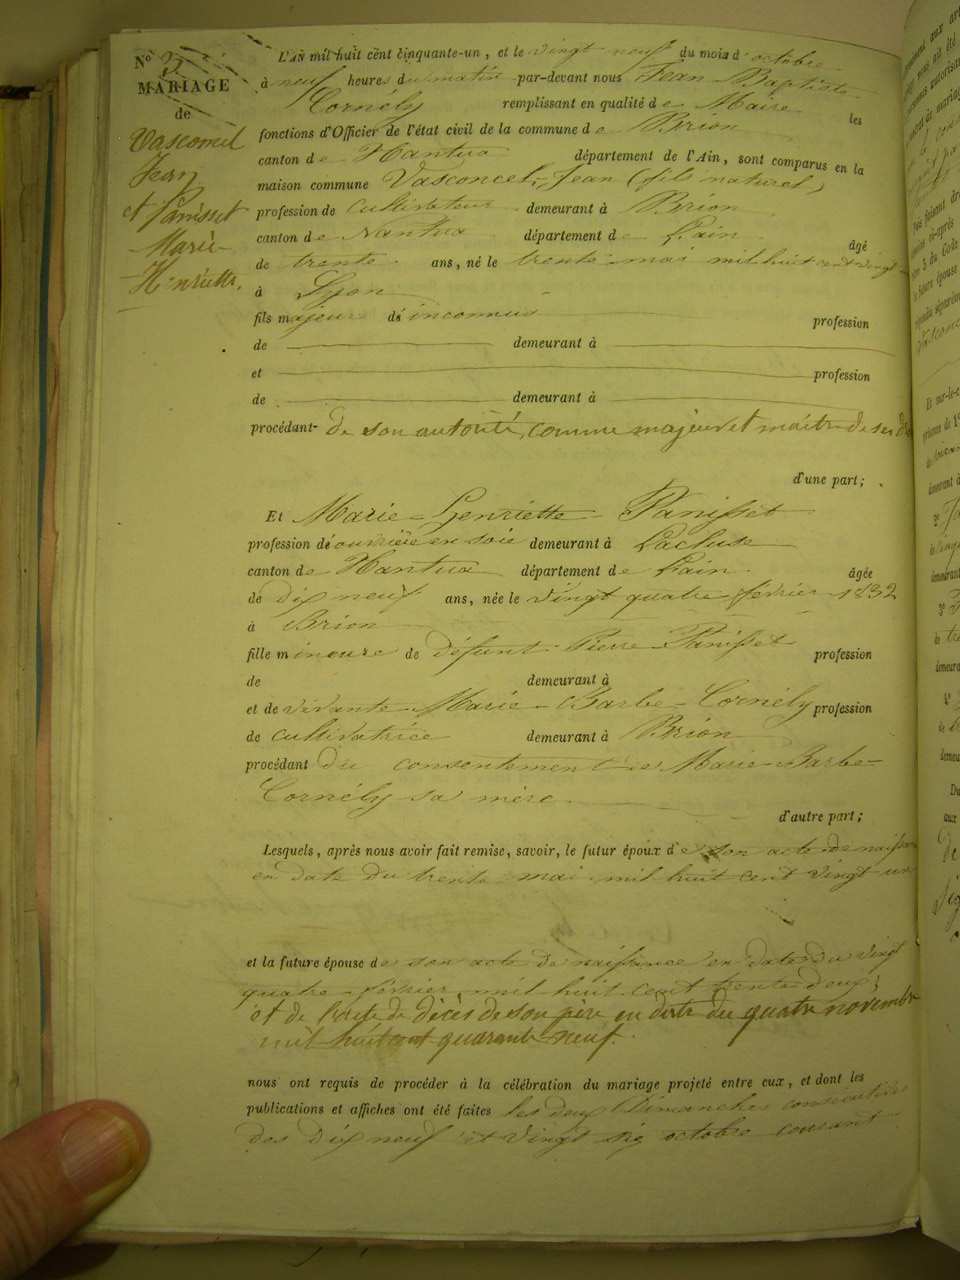 N° 3
MARIAGE
de
Vasconcel
Jean
et Panisset
Marie-
Henriette.
L'AN mil huit cent cinquante-un, et le vingt neuf du mois d'octobre
à neuf heures du matin par-devant nous Jean Baptiste
Cornély remplissant en qualité de Maire les
fonctions d'Officier de l'état civil de la commune de Brion
canton de Nantua département de l'Ain, sont comparus en la
maison commune Vasconcel, Jean (fils naturel)
profession de cultivateur demeurant à Brion
canton de Nantua département de l'ain âgé
de trente ans, né le trente mai mil huit cent vingt un
à Lyon
fils majeur de inconnus profession
de demeurant à
et profession
de demeurant à
procédant de son autorité, comme majeur et maître de ses
d'une part;
Et Marie-Henriette Panisset
profession d'ouvrière en soie demeurant à Lacluse
canton de Nantua département de l'ain âgée
de dix neuf ans, née le vingt quatre février 1832
à Brion
fille mineure de défunt Pierre Panisset profession
de demeurant à
et de vivante Marie-Barbe-Cornély profession
de cultivatrice demeurant à Brion
procédant du consentement de Marie-Barbe-
Cornély sa mère.
d'autre part;
Lesquels, après nous avoir fait remise, savoir, le futur époux de son acte de naissance
en date du trente mai mil huit cent vingt un
et la future épouse de son acte de naissance en date du vingt
quatre février mil huit cent trente deux;
et de l'acte de décès de son père en date du quatre novembre
mil huit cent quarante neuf.
nous ont requis de procéder à la célébration du mariage projeté entre eux, et dont les
publications et affiches ont été faites les deux Dimanches consécutifs
des dix neuf et vingt six octobre courant